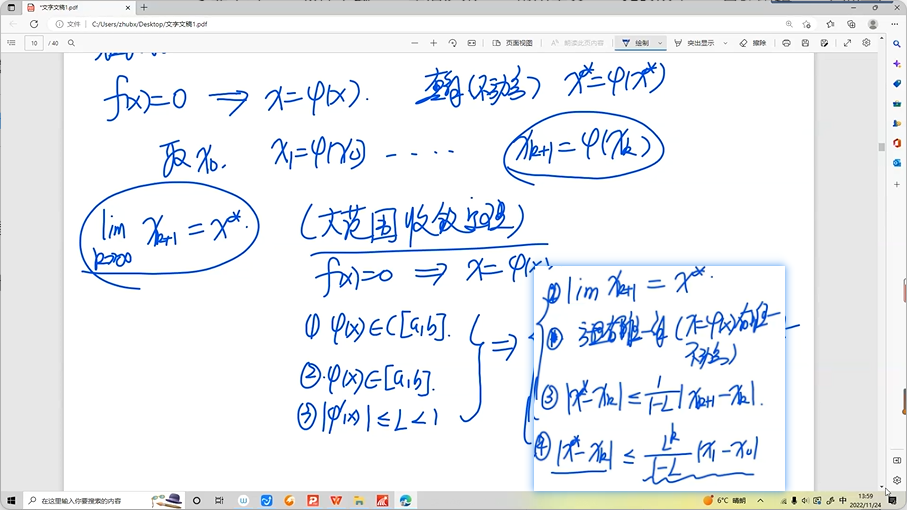 文字文稿1.pdf
文件 C:/Users/zhubx/Desktop/文字文稿1.pdf
10 /40 页面视图 朗读此页内容 绘制 突出显示 擦除
f(x)=0 ⟹ x=φ(x). (不动点) x*=φ(x*)
取 x₀. x₁=φ(x₀) ---- x_{k+1}=φ(x_k)
lim_{k→∞} x_{k+1}=x*.
(大范围收敛定理)
f(x)=0 ⟹ x=φ(x)
① φ(x)∈C[a,b].
② φ(x)∈[a,b].
③ |φ'(x)|≤L<1
⟹
② lim x_{k+1}=x*.
① 方程有唯一解 (x=φ(x)有唯一
不动点)
③ |x*-x_k|≤\frac{1}{1-L}|x_{k+1}-x_k|.
④ |x*-x_k|≤\frac{L^k}{1-L}|x₁-x₀|
在这里输入你要搜索的内容
6°C 晴朗
中
13:59
2022/11/24